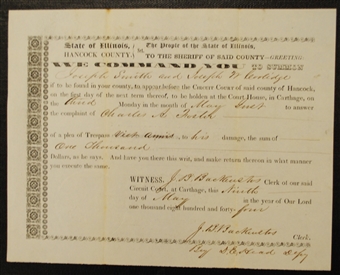 State of Illinois, The People of the State of Illinois,
HANCOCK COUNTY, ss. TO THE SHERIFF OF SAID COUNTY—GREETING:
WE COMMAND YOU TO SUMMON
Joseph Smith and Joseph W Coolidge
if to be found in your county, to appear before the Circuit Court of said county of Hancock,
on the first day of the next term thereof, to be holden at the Court House, in Carthage, on
the Monday in the month of May to answer
the complaint of Charles A. Foster
of a plea of Trespass to his damage, the sum of
One Thousand
Dollars, as he says. And have you there this writ, and make return thereon in what manner
you execute the same.
WITNESS, J. B. Backenstos Clerk of our said
Circuit Court, at Carthage, this Ninth
day of May in the year of our Lord
one thousand eight hundred and forty-four
J. B. Backenstos
Clerk.
By Head Dpy